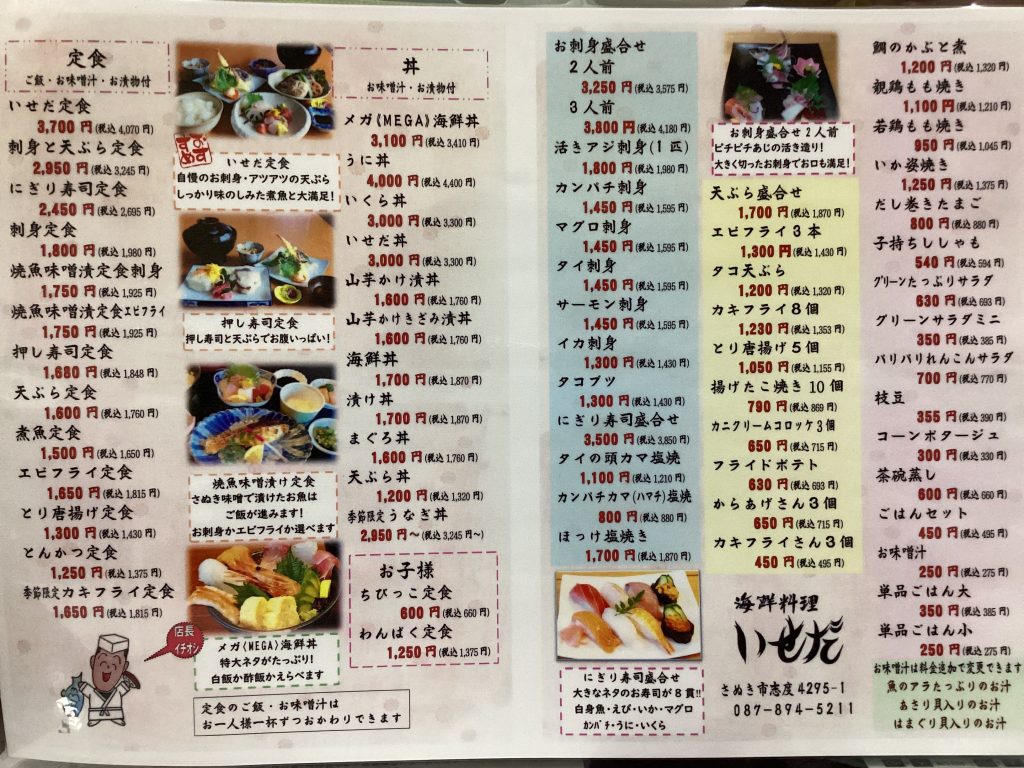 定食
ご飯・お味噌汁・お漬物付
いせだ定食
3,700 円(税込 4,070 円)
刺身と天ぷら定食
2,950 円(税込 3,245 円)
にぎり寿司定食
2,450 円(税込 2,695 円)
刺身定食
1,800 円(税込 1,980 円)
焼魚味噌漬定食刺身
1,750 円(税込 1,925 円)
焼魚味噌漬定食エビフライ
1,750 円(税込 1,925 円)
押し寿司定食
1,680 円(税込 1,848 円)
天ぷら定食
1,600 円(税込 1,760 円)
煮魚定食
1,500 円(税込 1,650 円)
エビフライ定食
1,650 円(税込 1,815 円)
とり唐揚げ定食
1,300 円(税込 1,430 円)
とんかつ定食
1,250 円(税込 1,375 円)
季節限定カキフライ定食
1,650 円(税込 1,815 円)
店長
イチオシ
おすすめ
いせだ定食
自慢のお刺身・アツアツの天ぷら
しっかり味のしみた煮魚と大満足!
押し寿司定食
押し寿司と天ぷらでお腹いっぱい!
焼魚味噌漬け定食
さぬき味噌で漬けたお魚は
ご飯が進みます!
お刺身かエビフライか選べます
メガ《MEGA》海鮮丼
特大ネタがたっぷり!
白飯か酢飯かえらべます
定食のご飯・お味噌汁は
お一人様一杯ずつおかわりできます
丼
お味噌汁・お漬物付
メガ《MEGA》海鮮丼
3,100 円(税込 3,410 円)
うに丼
4,000 円(税込 4,400 円)
いくら丼
3,000 円(税込 3,300 円)
いせだ丼
3,000 円(税込 3,300 円)
山芋かけ漬丼
1,600 円(税込 1,760 円)
山芋かけきざみ漬丼
1,600 円(税込 1,760 円)
海鮮丼
1,700 円(税込 1,870 円)
漬け丼
1,700 円(税込 1,870 円)
まぐろ丼
1,600 円(税込 1,760 円)
天ぷら丼
1,200 円(税込 1,320 円)
季節限定うなぎ丼
2,950 円〜(税込 3,245 円〜)
お子様
ちびっこ定食
600 円(税込 660 円)
わんぱく定食
1,250 円(税込 1,375 円)
お刺身盛合せ
2人前
3,250 円(税込 3,575 円)
3人前
3,800 円(税込 4,180 円)
活きアジ刺身(1匹)
1,800 円(税込 1,980 円)
カンパチ刺身
1,450 円(税込 1,595 円)
マグロ刺身
1,450 円(税込 1,595 円)
タイ刺身
1,450 円(税込 1,595 円)
サーモン刺身
1,450 円(税込 1,595 円)
イカ刺身
1,300 円(税込 1,430 円)
タコブツ
1,300 円(税込 1,430 円)
にぎり寿司盛合せ
3,500 円(税込 3,850 円)
タイの頭カマ塩焼
1,100 円(税込 1,210 円)
カンパチカマ(ハマチ)塩焼
800 円(税込 880 円)
ほっけ塩焼き
1,700 円(税込 1,870 円)
にぎり寿司盛合せ
大きなネタのお寿司が8貫!!
白身魚・えび・いか・マグロ
カンパチ・うに・いくら
お刺身盛合せ2人前
ピチピチあじの活き造り!
大きく切ったお刺身でお口も満足!
天ぷら盛合せ
1,700 円(税込 1,870 円)
エビフライ3本
1,300 円(税込 1,430 円)
タコ天ぷら
1,200 円(税込 1,320 円)
カキフライ8個
1,230 円(税込 1,353 円)
とり唐揚げ5個
1,050 円(税込 1,155 円)
揚げたこ焼き10個
790 円(税込 869 円)
カニクリームコロッケ3個
650 円(税込 715 円)
フライドポテト
630 円(税込 693 円)
からあげさん3個
650 円(税込 715 円)
カキフライさん3個
450 円(税込 495 円)
海鮮料理
いせだ
さぬき市志度 4295-1
087-894-5211
鯛のかぶと煮
1,200 円(税込 1,320 円)
親鶏もも焼き
1,100 円(税込 1,210 円)
若鶏もも焼き
950 円(税込 1,045 円)
いか姿焼き
1,250 円(税込 1,375 円)
だし巻きたまご
800 円(税込 880 円)
子持ちししゃも
540 円(税込 594 円)
グリーンたっぷりサラダ
630 円(税込 693 円)
グリーンサラダミニ
350 円(税込 385 円)
パリパリれんこんサラダ
700 円(税込 770 円)
枝豆
355 円(税込 390 円)
コーンポタージュ
300 円(税込 330 円)
茶碗蒸し
600 円(税込 660 円)
ごはんセット
450 円(税込 495 円)
お味噌汁
250 円(税込 275 円)
単品ごはん大
350 円(税込 385 円)
単品ごはん小
250 円(税込 275 円)
お味噌汁は料金追加で変更できます
魚のアラたっぷりのお汁
あさり貝入りのお汁
はまぐり貝入りのお汁